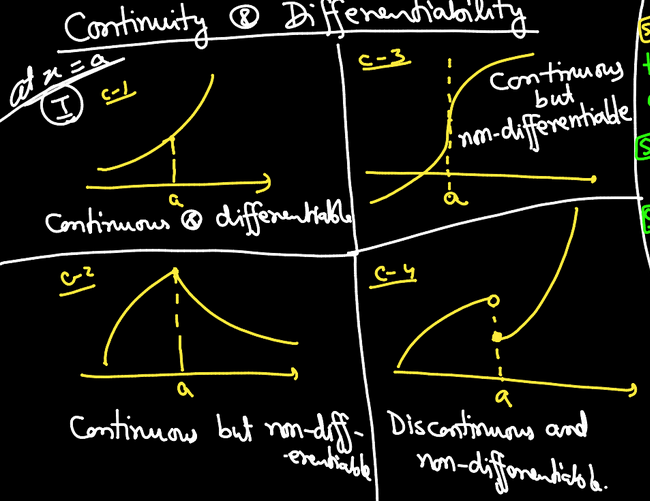 Continuity & Differentiability
at x = a
I
C-1
a
Continuous & differentiable
C-3
Continuous
but
non-differentiable
a
C-2
a
Continuous but non-diff-
-erentiable
C-4
a
Discontinuous and
non-differentiable.